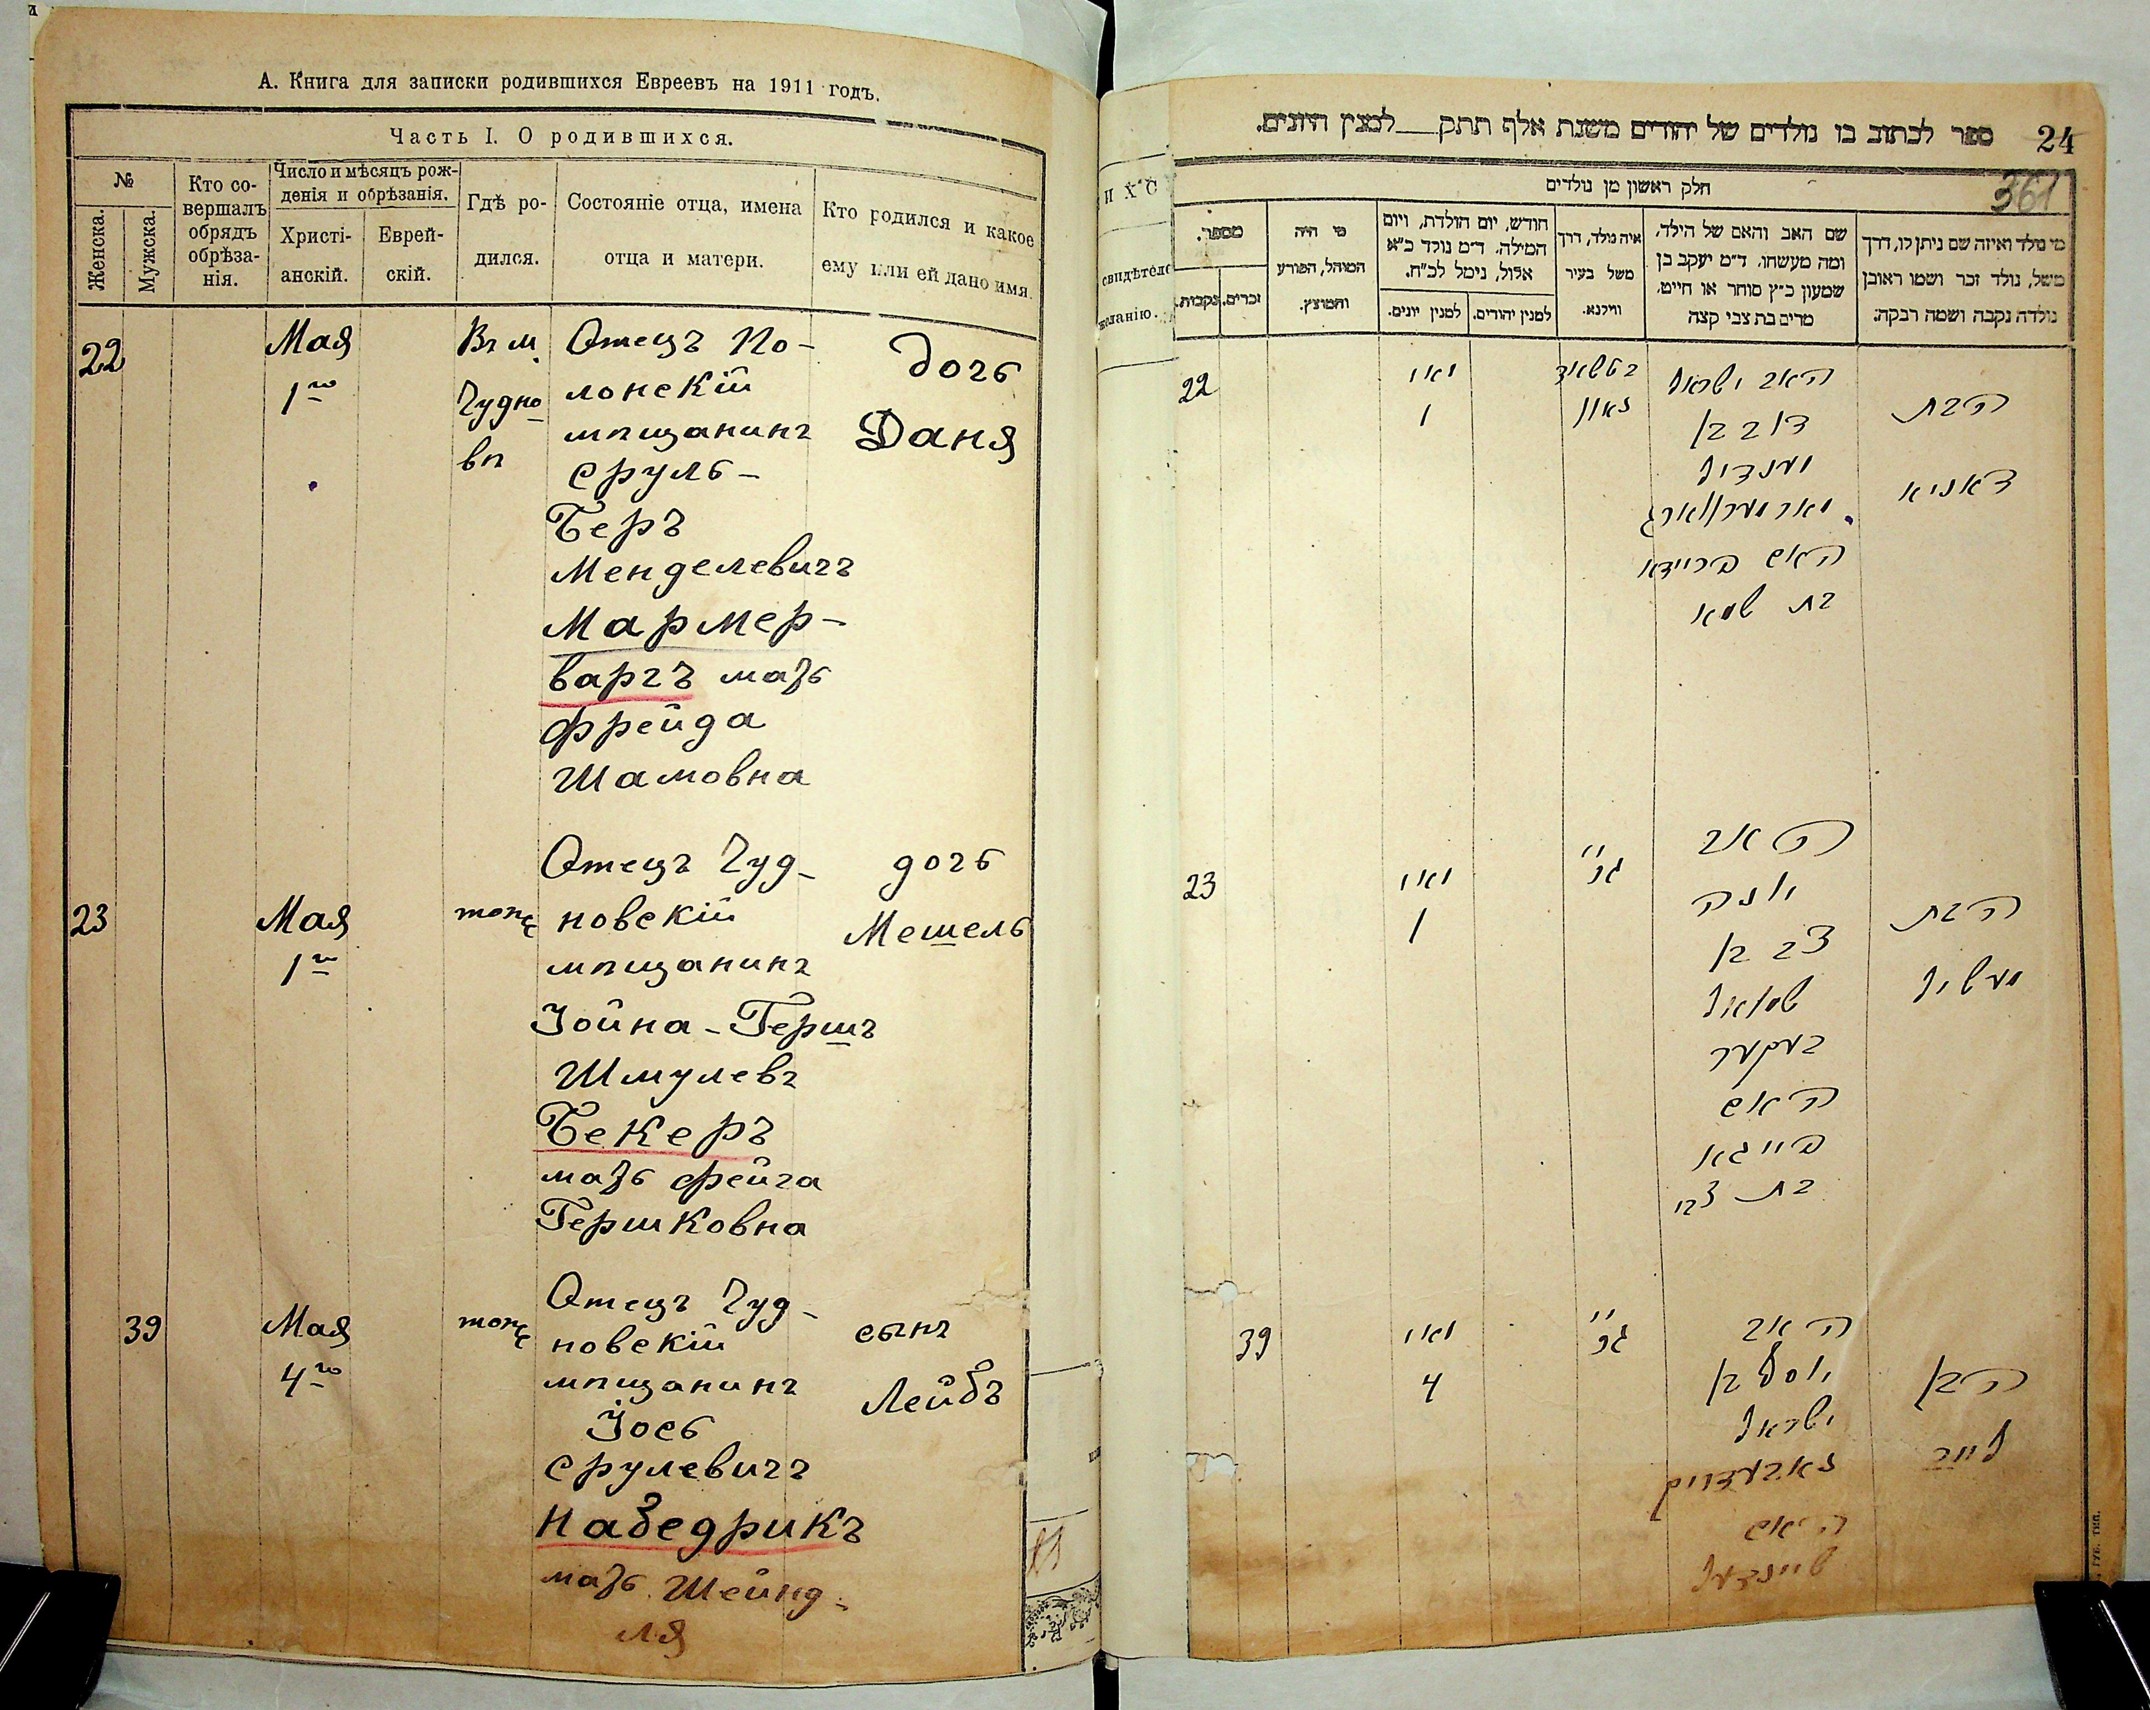 А. Книга для записки родившихся Евреевъ на 1911 годъ.
Часть I. О родившихся.
№
Женска.
Мужска.
Кто со-
вершалъ
обрядъ
обрѣза-
нія.
Число и мѣсяцъ рож-
денія и обрѣзанія.
Христі-
анскій.
Еврей-
скій.
Гдѣ ро-
дился.
Состояніе отца, имена
отца и матери.
Кто родился и какое
ему или ей дано имя.
22
Мая
1го
Въ м.
Чудно
вѣ
Отецъ По-
лонскій
мѣщанинъ
Сруль-
Беръ
Менделевичъ
Мармер-
варгъ мать
Фрейда
Шамовна
дочь
Даня
23
Мая
1го
тоже
Отецъ Чуд-
новскій
мѣщанинъ
Іойна-Гершъ
Шмулевъ
Бекеръ
мать Фейга
Гершковна
дочь
Мешель
39
Мая
4го
тоже
Отецъ Чуд-
новскій
мѣщанинъ
Іось
Срулевичъ
Набедрикъ
мать Шейнд-
ля
сынъ
Лейбъ
ихс
свидѣтело
желанію.
24
361
ספר לכתוב בו נולדים של יהודים משנת אלף תתק___למנין היונים.
חלק ראשון מן נולדים
מספר.
נקבות.
זכרים.
מי היה
המוהל, הפורע
והמוצץ.
חודש, יום הולדת, ויום
המילה. ד״מ נולד כ״א
אלול, נימל לכ״ח.
למנין יונים.
למנין יהודים.
איה נולד, דרך
משל בעיר
ווילנא.
שם האב והאם של הילד,
ומה מעשהו. ד״מ יעקב בן
שמעון כ״ץ סוחר או חייט,
מרים בת צבי קצה
מי נולד ואיזה שם ניתן לו, דרך
משל, נולד זכר ושמו ראובן
נולדה נקבה ושמה רבקה:
22
מאי
1
האב ישראל
דוב בן
מענדיל
מארמערווארג
האם פריידא
בת שמא
הבת
דאניא
23
מאי
1
גם
האב
יונה
צב בן
שמואל
בעקער
האם
פייגא
בת צבי
הבת
מעשיל
39
מאי
4
גם
האב
יוסף בן
ישראל
נאבעדריק
האם
שיינדעל
הבן
לייב